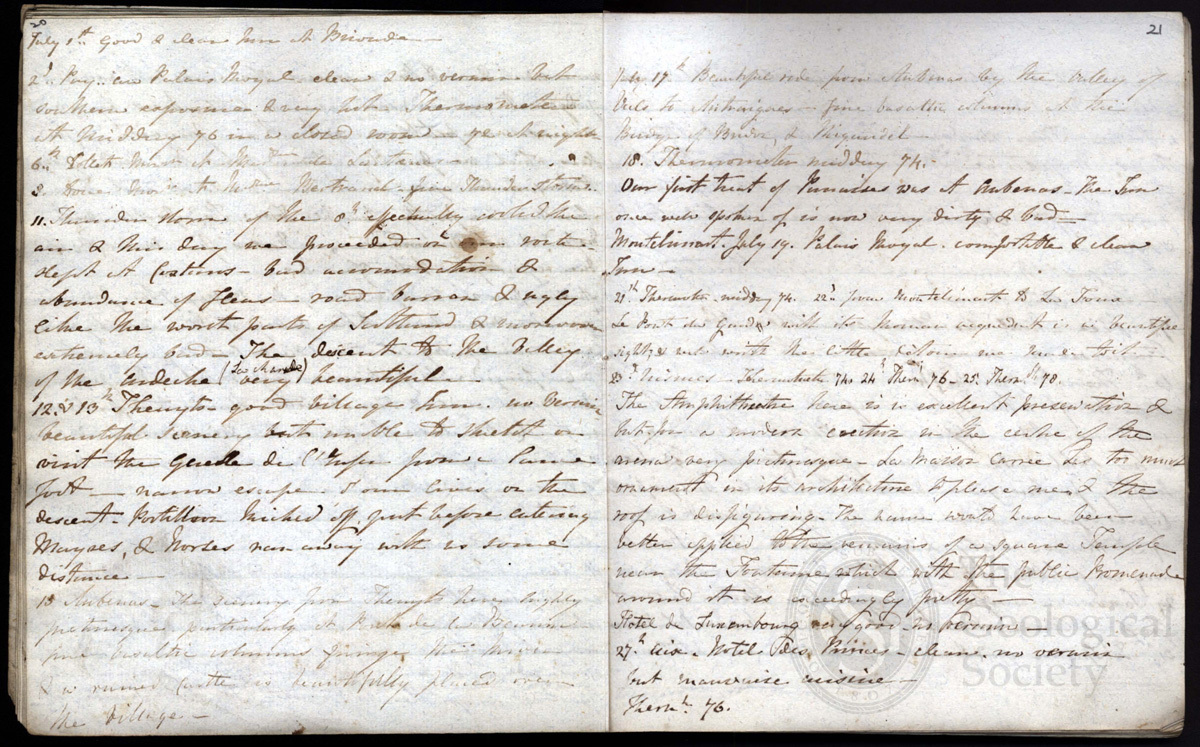 20
July 1st Good & clean Inn at Brioude —
2d Puy en Palais Royal clean & no vermin but
southern exposure & very hot. Thermometer
at Midday 76 in a closed room — 72 at night
6th
8. Mont Thunder storm.
11. Thunder storm of the 8th effectually cooled the
air & this day we proceeded on our route
slept at bad accommodation &
abundance of fleas — road barren & ugly
like the worst parts of Scotland & moreover
extremely bad — The descent to the Valley
of the Ardeche (La ) very beautiful —
12 & 13th Thuyts good village Inn. no vermin
beautiful scenery but unable to sketch or
visit the Gueule d'Enfer from a lame
foot — narrow escape of our lives on the
descent. Postillion kicked off just before entering
Mayres, & Horses ran away with us some
distance —
Aubenas — The scenery from Thuyts here highly
picturesque particularly at la Beaume
fine basaltic columns fringe the river
& a ruined castle is beautifully placed over
the village —
21
July 17th Beautiful ride from Aubenas by the valley of
Vals to Antraigues — fine basaltic columns at the
Bridge of & Rigaudel —
18. Thermometer midday 74. —
Our first treat of was at Aubenas — The Inn
once well spoken of is now very dirty & bad —
Montelimart. July 19. Palais Royal. comfortable & clean
Inn —
21st Thermometer midday 74. 22d from Montelimart to La —
Le Pont du Gard with its Roman aqueduct is a beautiful
sight & well worth the little we made to it —
23rd Nismes — Thermometer 74. 24th Therr 76 — 25. Therr 78.
The Amphitheatre here is in excellent preservation &
but for a modern erection in the centre of the
arena very picturesque — La Maison Carree has too much
ornament in its architecture to please me & the
roof is disfiguring — The name would have been
better applied to the remains of a square Temple
near the Fontaine which with the public Promenade
around it is exceedingly pretty —
Hotel de Luxembourg very good. no vermin —
27th Aix. Hotel des Princes — clean. no vermin
but mauvaise cuisine —
Therr. 76.
Geological
Society